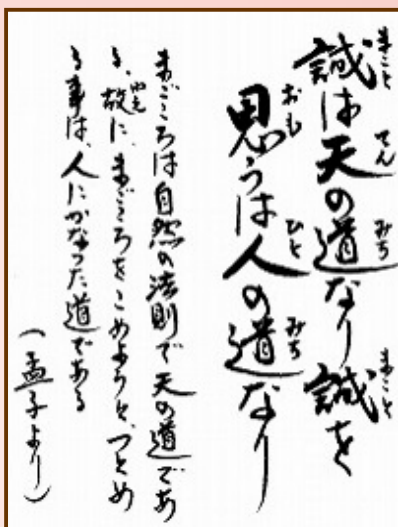 誠は天の道なり誠を
思うは人の道なり
まごころは自然の法則で天の道であ
る、故に、まごころをこめようと、つとめ
る事は、人にかなった道である
（孟子より）